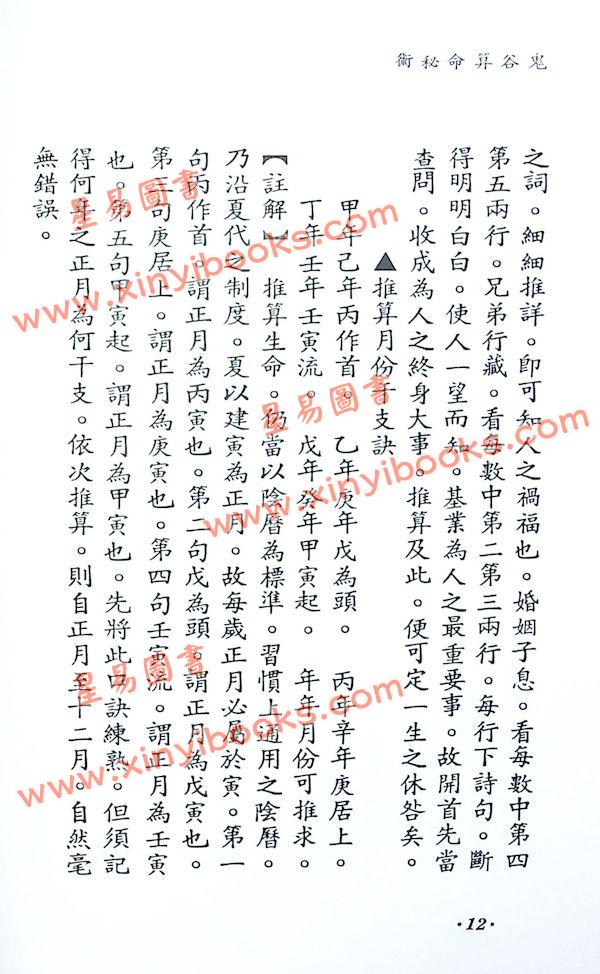 鬼谷算命秘術
之詞。細細推詳。即可知人之禍福也。婚姻子息。看每數中第四
第五兩行。兄弟行藏。看每數中第二第三兩行。每行下詩句。斷
得明明白白。使人一望而知。基業為人之最重要事。故開首先當
查問。收成為人之終身大事。推算及此。便可定一生之休咎矣。
▲推算月份干支訣
甲年己年丙作首。 乙年庚年戊為頭。 丙年辛年庚居上。
丁年壬年壬寅流。 戊年癸年甲寅起。 年年月份可推求。
【註解】 推算生命。仍當以陰曆為標準。習慣上通用之陰曆。
乃沿夏代之制度。夏以建寅為正月。故每歲正月必屬於寅。第一
句丙作首。謂正月為丙寅也。第二句戊為頭。謂正月為戊寅也。
第三句庚居上。謂正月為庚寅也。第四句壬寅流。謂正月為壬寅
也。第五句甲寅起。謂正月為甲寅也。先將此口訣練熟。但須記
得何年之正月為何干支。依次推算。則自正月至十二月。自然毫
無錯誤。
·12·
星易圖書
www.xinyibooks.com
星易圖書
www.xinyibooks.com
星易圖書
www.xinyibooks.com